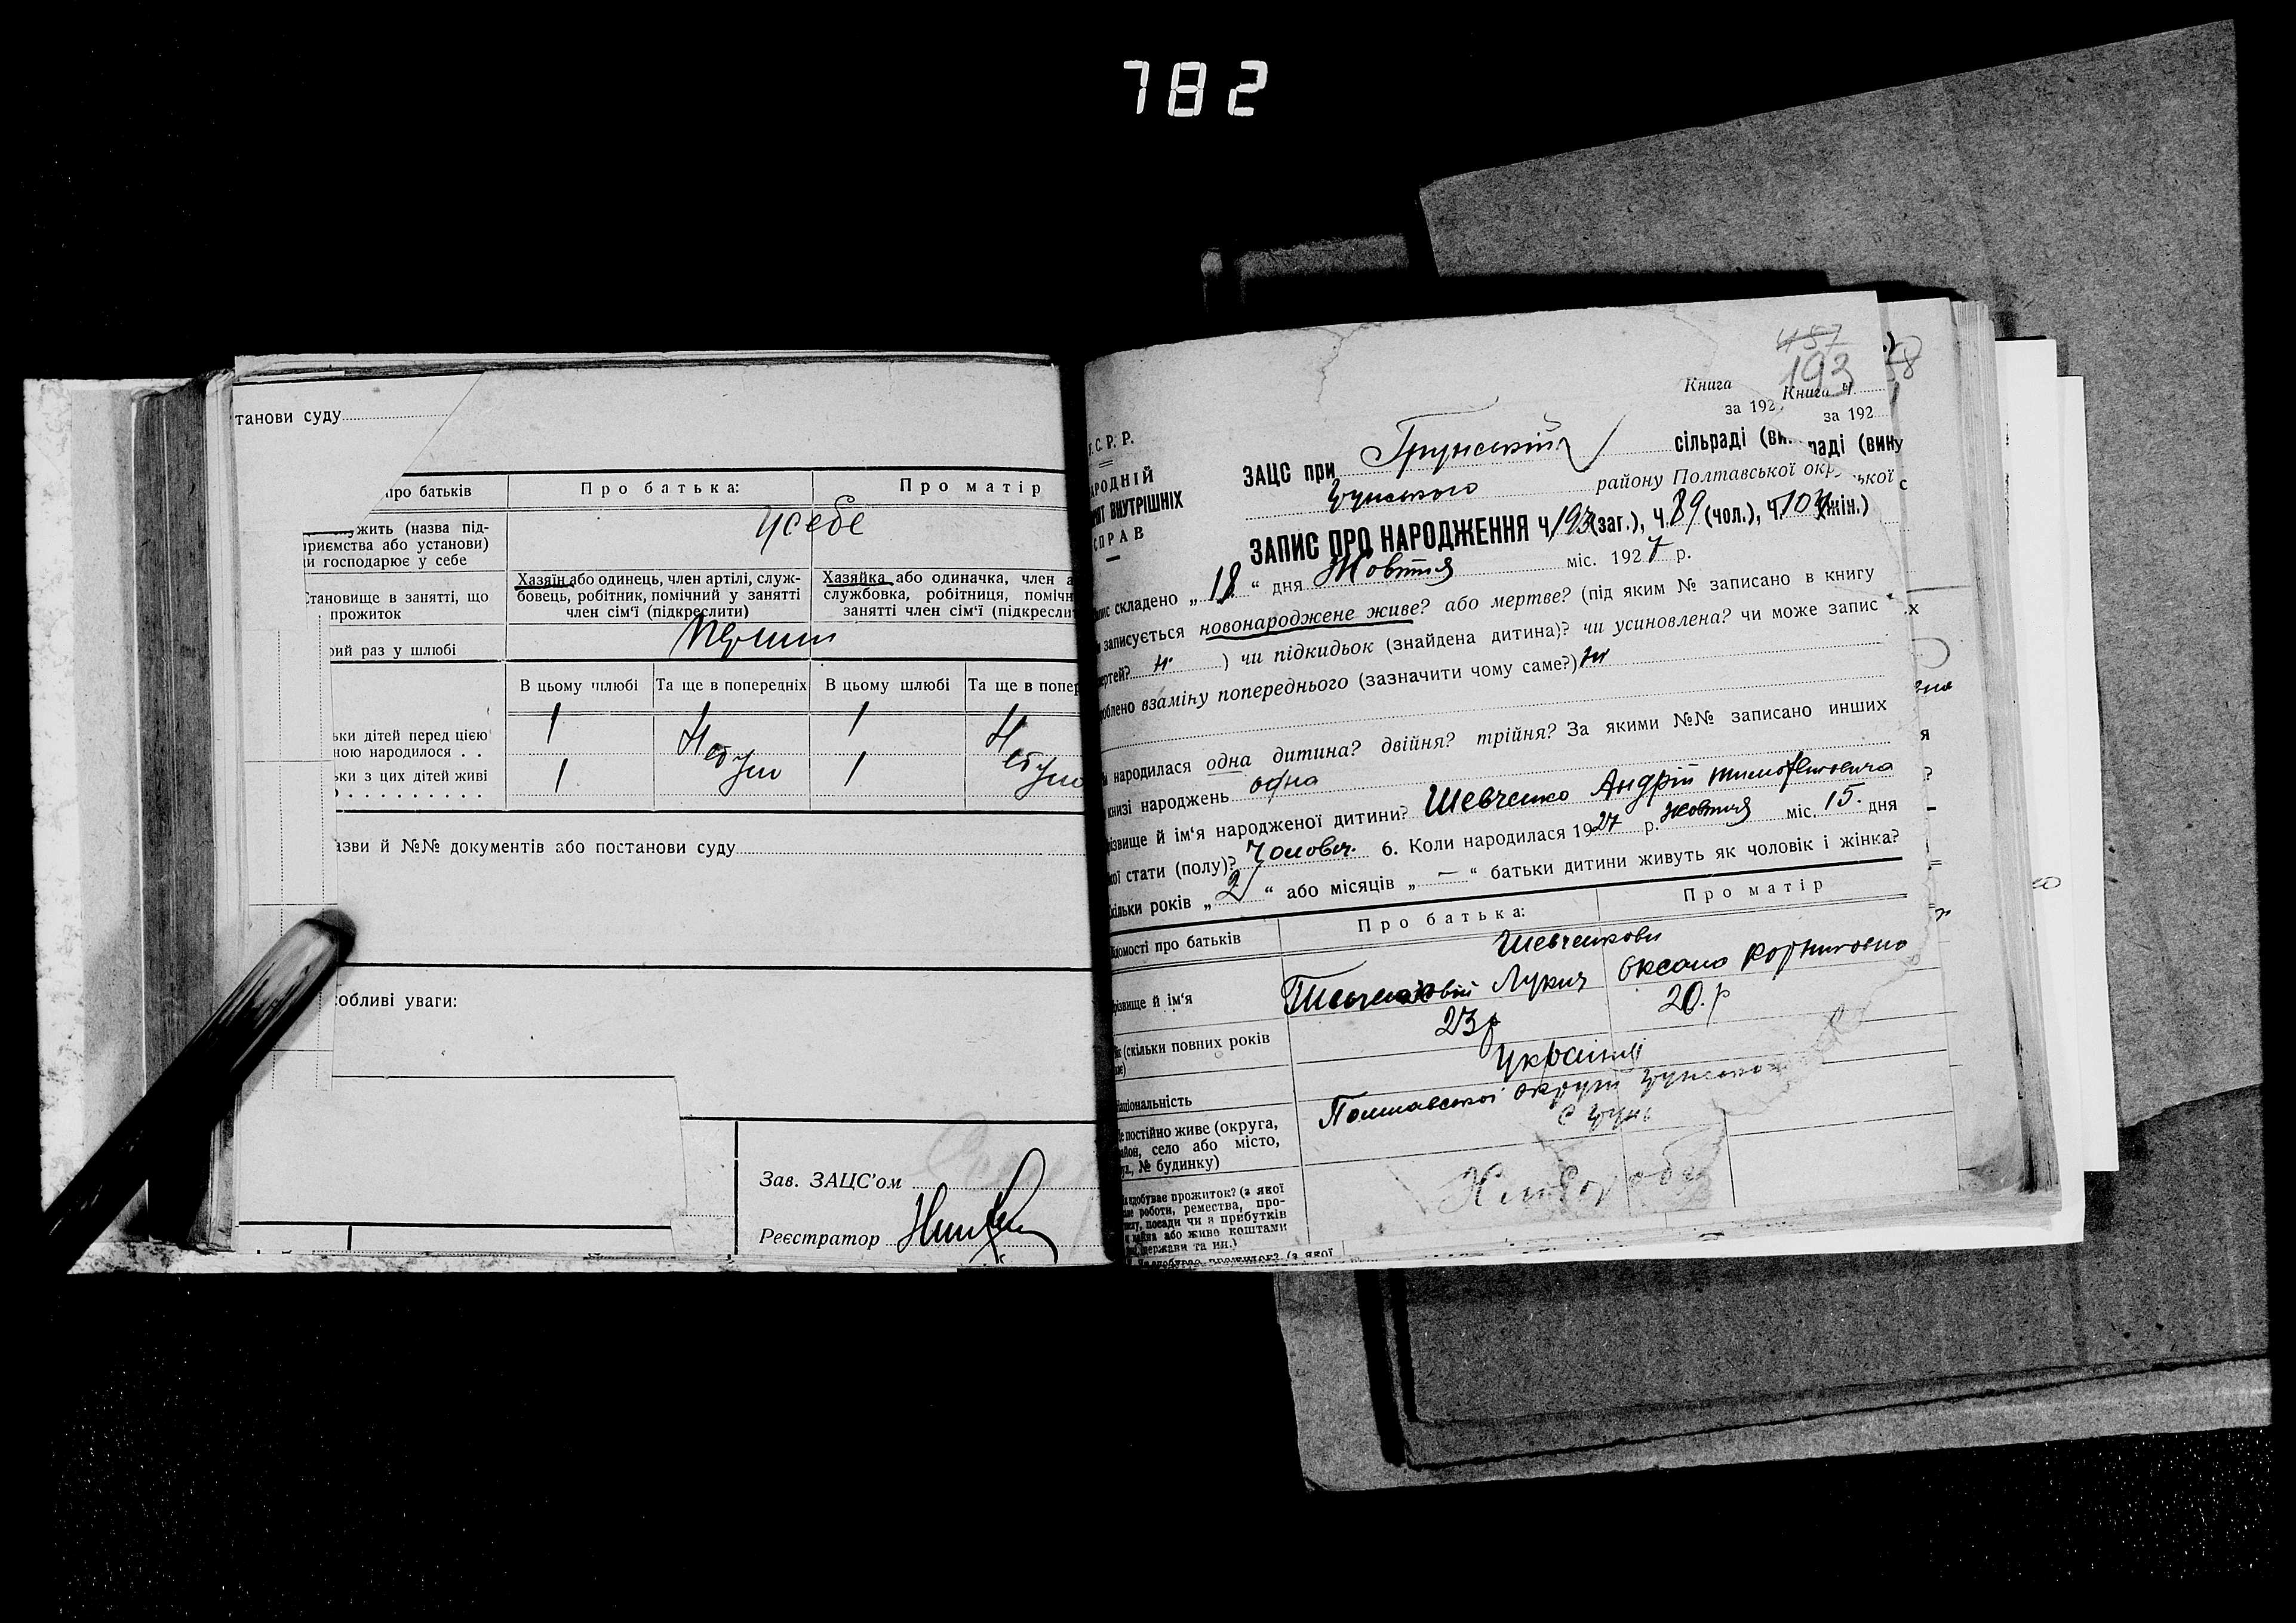 782
танови суду
про батьків Про батька: Про матір
жить (назва під-
приємства або установи)
и господарює у себе
усебе
Становище в занятті, що
прожиток
Хазяїн або одинець, член артілі, служ-
бовець, робітник, помічний у занятті
член сім'ї (підкреслити)
Хазяйка або одиначка, член а
службовка, робітниця, помічн
занятті член сім'ї (підкреслит
рий раз у шлюбі
В цьому шлюбі Та ще в попередніх В цьому шлюбі Та ще в попер
ьки дітей перед цією
ною народилося . .
1 1
ьки з цих дітей живі
1 1
азви й №№ документів або постанови суду
собливі уваги:
Зав. ЗАЦС'ом
Реєстратор
457
193
Книга Книга ч.
за 192 за 192
С. Р. Р.
АРОДНІЙ
ВНУТРІШНІХ
СПРАВ
ЗАЦС при Грунській сільраді (ви раді (вину
Грунського району Полтавської окр ської с
ЗАПИС ПРО НАРОДЖЕННЯ ч. 193 (заг.), ч. 89 (чол.), ч. 104 (жін.)
складено „ 18 “ дня Жовтня міс. 1927 р.
записується новонароджене живе? або мертве? (під яким № записано в книгу
ертей? ) чи підкидьок (знайдена дитина)? чи усиновлена? чи може запис
облено взаміну попереднього (зазначити чому саме?)
народилася одна дитина? двійня? трійня? За якими №№ записано инших
книзі народжень одна
ізвище й ім'я народженої дитини? Шевченко Андрій Тимофієвича
кої стати (полу)? чоловіч. 6. Коли народилася 1927 р. жовтня міс. 15. дня
кільки років „ 2 “ або місяців „ — “ батьки дитини живуть як чоловік і жінка?
домості про батьків Про батька: Про матір
Шевченкови
різвище й ім'я Лукич Оксана Корніивна
(скільки повних років 23 р 20. р
Національність Українці
Де постійно живе (округа,
айон, село або місто,
ул., № будинку)
Полтавської округи Грунсько
с Грунь
здобуває прожиток? (з якої
роботи, ремества, про-
посади чи з прибутків
майна або живе коштами
держави та ин.)
Хлібороби